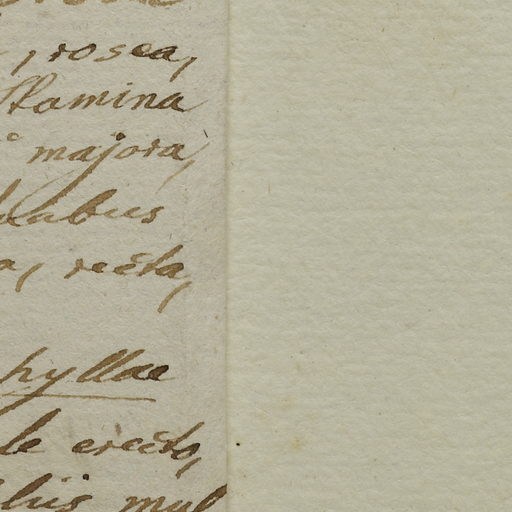 , rosea,
Stamina
majora,
a, recta,
hyllae
le erecto,
liis mul